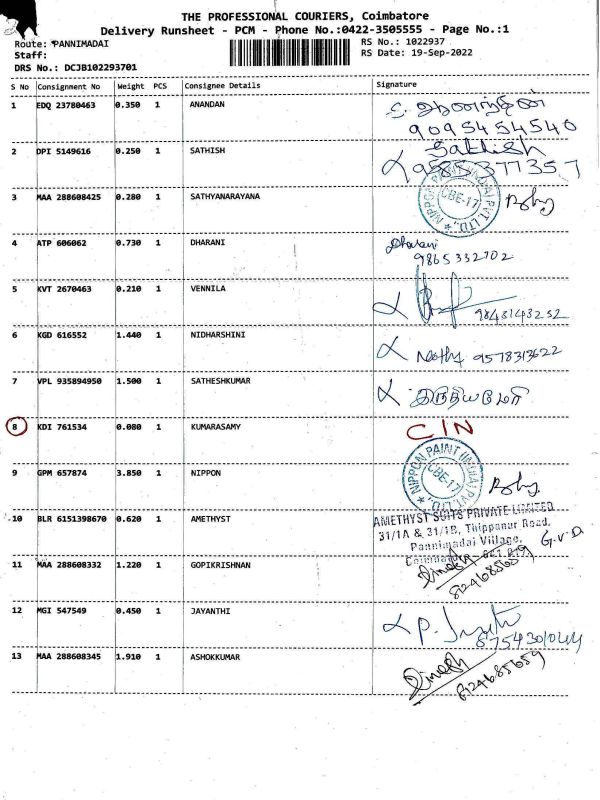 THE PROFESSIONAL COURIERS, Coimbatore
Delivery Runsheet - PCM - Phone No.:0422-3505555 - Page No.:1
Route: PANNIMADAI RS No.: 1022937
Staff: RS Date: 19-Sep-2022
DRS No.: DCJB102293701
S No Consignment No Weight PCS Consignee Details Signature
1 EDQ 23780463 0.350 1 ANANDAN
9095454540
2 DPI 5149616 0.250 1 SATHISH Sathish
9585377357
3 MAA 288608425 0.280 1 SATHYANARAYANA NIPPON PAINT (INDIA) PVT. LTD. CBE-17
4 ATP 606062 0.730 1 DHARANI Dharani
9865332702
5 KVT 2670463 0.210 1 VENNILA
9843143252
6 KGD 616552 1.440 1 NIDHARSHINI 9578313622
7 VPL 935894950 1.500 1 SATHESHKUMAR
8 KDI 761534 0.080 1 KUMARASAMY CIN
9 GPM 657874 3.850 1 NIPPON NIPPON PAINT (INDIA) PVT. LTD. CBE-17
10 BLR 6151398670 0.620 1 AMETHYST AMETHYST SUITS PRIVATE LIMITED
31/1A & 31/1B, Thippanur Road,
Pannimadai Village,
Coimbatore
11 MAA 288608332 1.220 1 GOPIKRISHNAN
8124685659
12 MGI 547549 0.450 1 JAYANTHI
8754301044
13 MAA 288608345 1.910 1 ASHOKKUMAR
8124685659